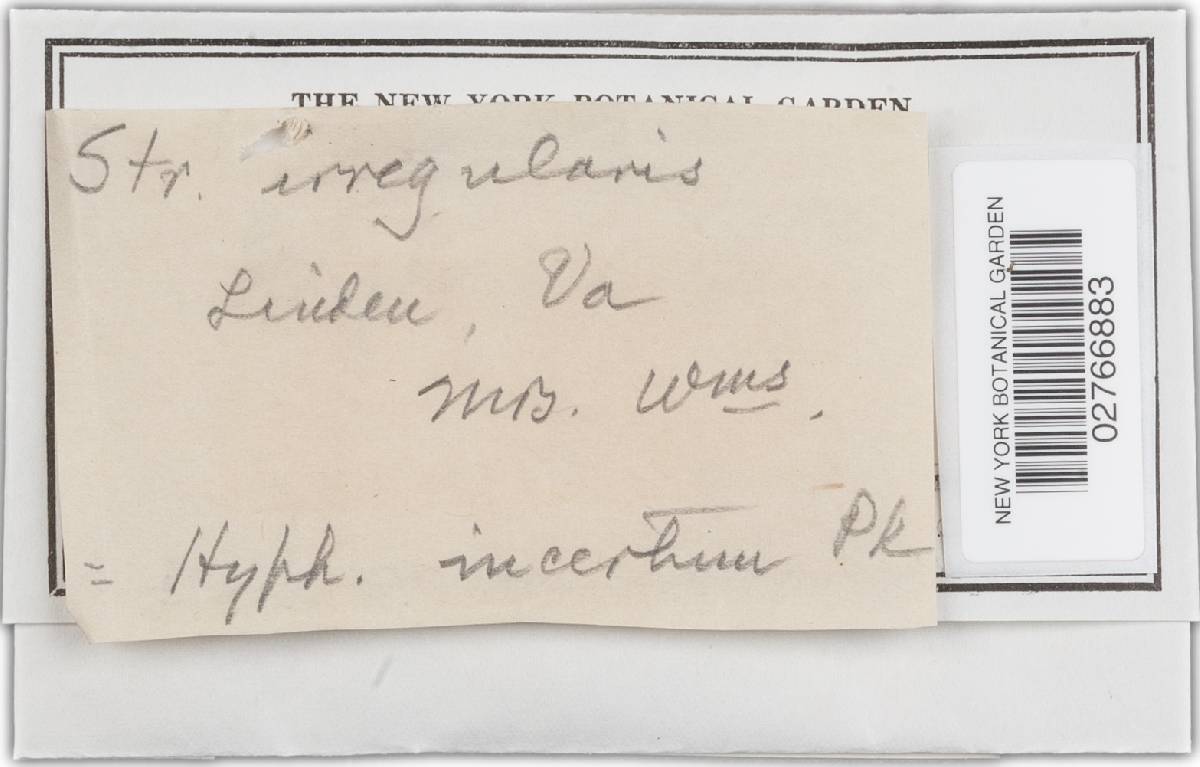 THE NEW YORK BOTANICAL GARDEN
Str. irregularis
Linden, Va
MB. Wms.
= Hyph. incertum Pk
NEW YORK BOTANICAL GARDEN
02766883